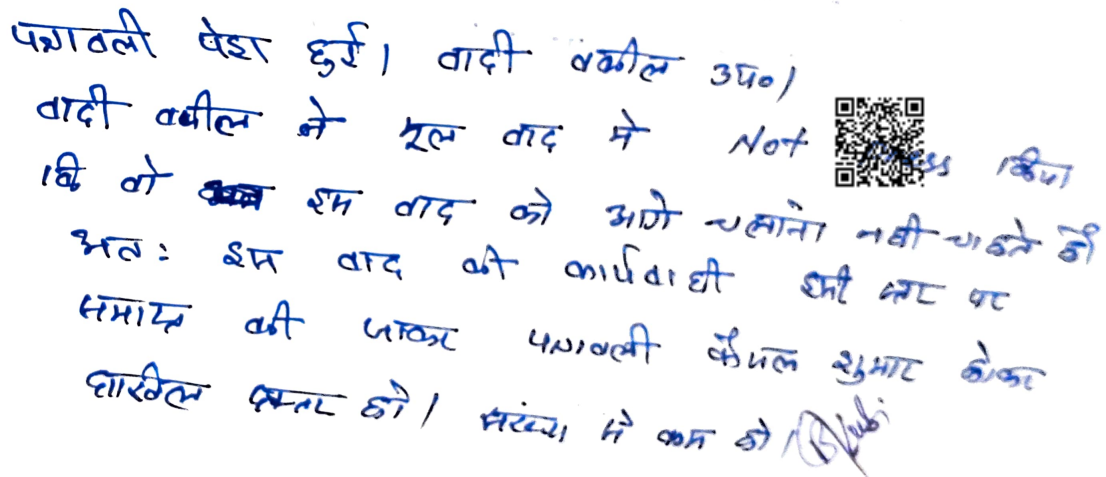 पत्रावली पेश हुई। वादी वकील उप०।
वादी वकील ने मूल वाद मे Not किया
कि वो इस वाद को आगे चलाना नही चाहते है
अतः इस वाद की कार्यवाही इसी स्तर पर
समाप्त की जाकर पत्रावली फैसल शुमार होकर
दाखिल दफ्तर हो। संख्या मे कम हो।